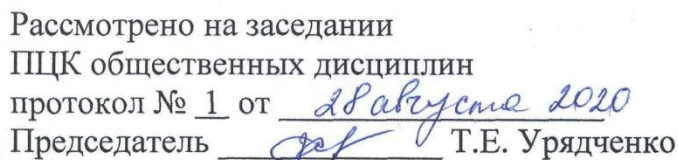 Рассмотрено на заседании
ПЦК общественных дисциплин
протокол № 1 от 28 августа 2020
Председатель Т.Е. Урядченко